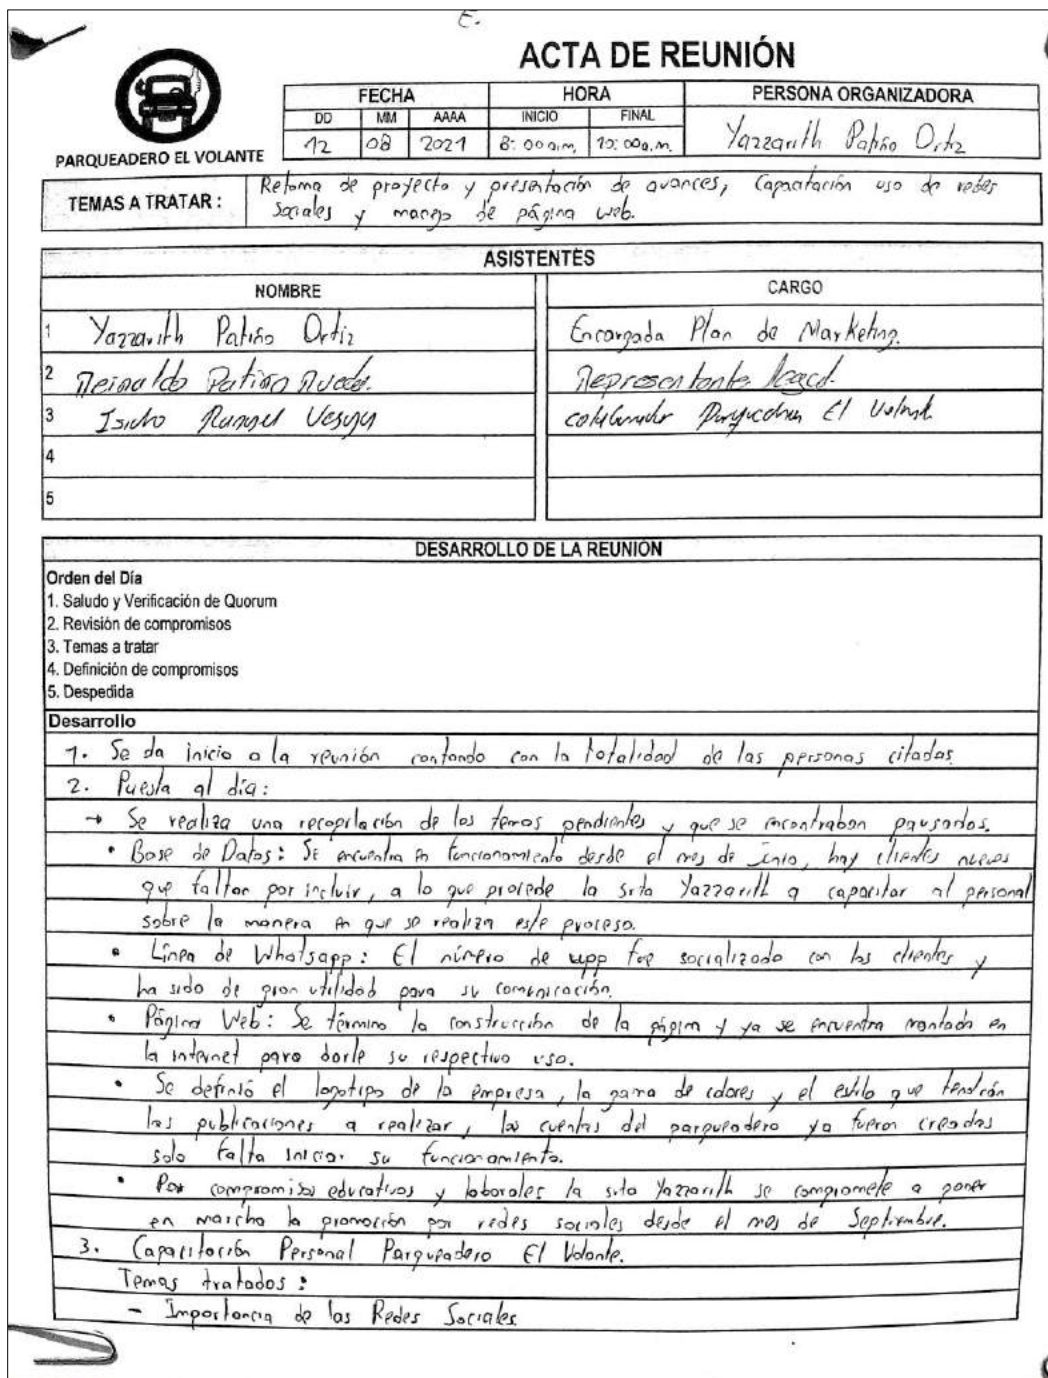 E.
ACTA DE REUNIÓN
PARQUEADERO EL VOLANTE
FECHA HORA PERSONA ORGANIZADORA
DD MM AAAA INICIO FINAL
12 08 2021 8:00 a.m. 10:00 a.m. Yazzarith Patiño Ortiz
TEMAS A TRATAR : Retoma de proyecto y presentación de avances, Capacitación uso de redes
Sociales y manejo de página web.
ASISTENTES
NOMBRE CARGO
1 Yazzarith Patiño Ortiz Encargada Plan de Marketing.
2 Reinaldo Patiño Rueda. Representante Legal.
3 Isidro Rangel El Volante
4
5
DESARROLLO DE LA REUNIÓN
Orden del Día
1. Saludo y Verificación de Quorum
2. Revisión de compromisos
3. Temas a tratar
4. Definición de compromisos
5. Despedida
Desarrollo
1. Se da inicio a la reunión contando con la totalidad de las personas citadas.
2. Puesta al día:
→ Se realiza una recopilación de los temas pendientes y que se encontraban pausados.
• Base de Datos: Se encuentra en funcionamiento desde el mes de Junio, hay clientes nuevos
que faltan por incluir, a lo que procede la srta Yazzarith a capacitar al personal
sobre la manera en que se realiza este proceso.
• Línea de Whatsapp: El número de wpp fue socializado con los clientes y
ha sido de gran utilidad para su comunicación.
• Página Web: Se término la construcción de la página y ya se encuentra montada en
la internet para darle su respectivo uso.
• Se definió el logotipo de la empresa, la gama de colores y el estilo que tendrán
las publicaciones a realizar, las cuentas del parqueadero ya fueron creadas
solo falta iniciar su funcionamiento.
• Por compromisos educativos y laborales la srta Yazzarith se compromete a poner
en marcha la promoción por redes sociales desde el mes de Septiembre.
3. Capacitación Personal Parqueadero El Volante.
Temas tratados :
- Importancia de las Redes Sociales